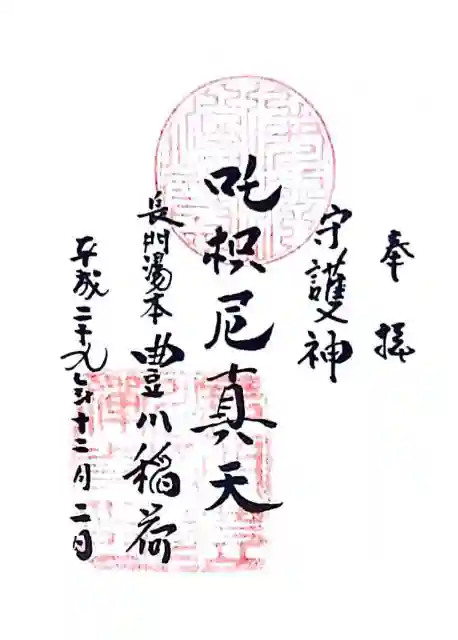 奉拝
守護神
吒枳尼真天
長門湯本 豊川稲荷
平成二十九年十二月二日